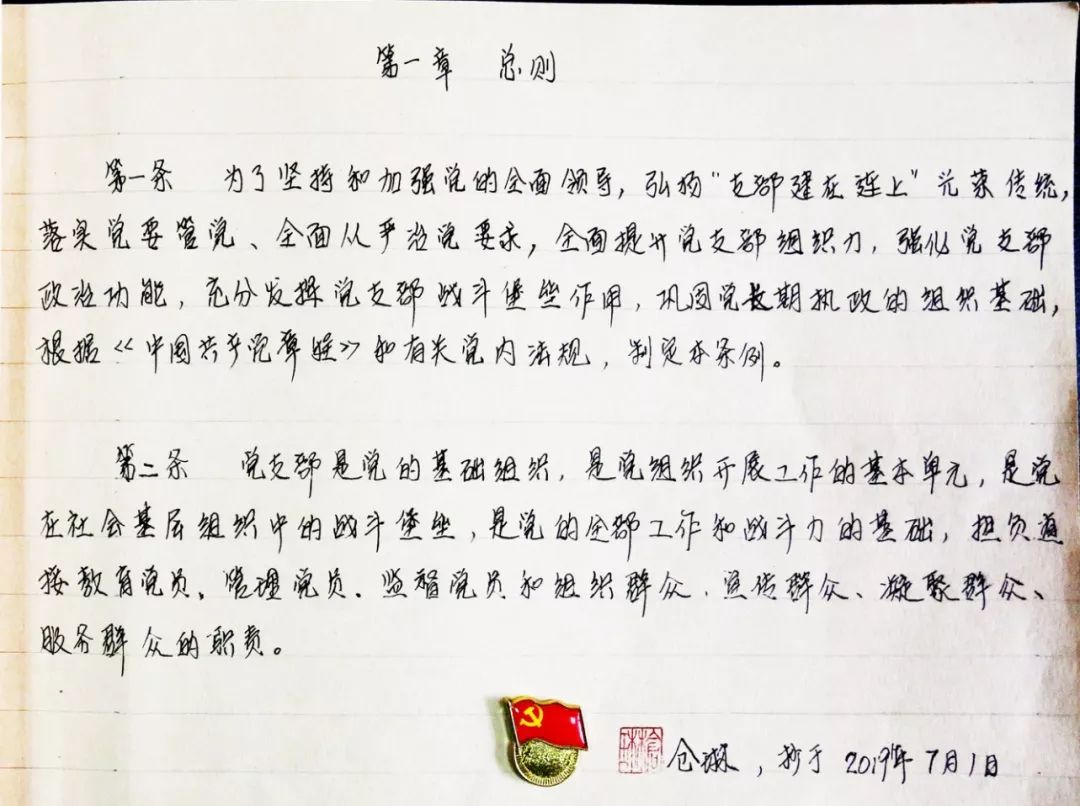 第一章 总则
第一条 为了坚持和加强党的全面领导，弘扬“支部建在连上”光荣传统，
落实党要管党、全面从严治党要求，全面提升党支部组织力，强化党支部
政治功能，充分发挥党支部战斗堡垒作用，巩固党长期执政的组织基础，
根据《中国共产党章程》和有关党内法规，制定本条例。
第二条 党支部是党的基础组织，是党组织开展工作的基本单元，是党
在社会基层组织中的战斗堡垒，是党的全部工作和战斗力的基础，担负直
接教育党员、管理党员、监督党员和组织群众、宣传群众、凝聚群众、
服务群众的职责。
仓琳，抄于2019年7月1日